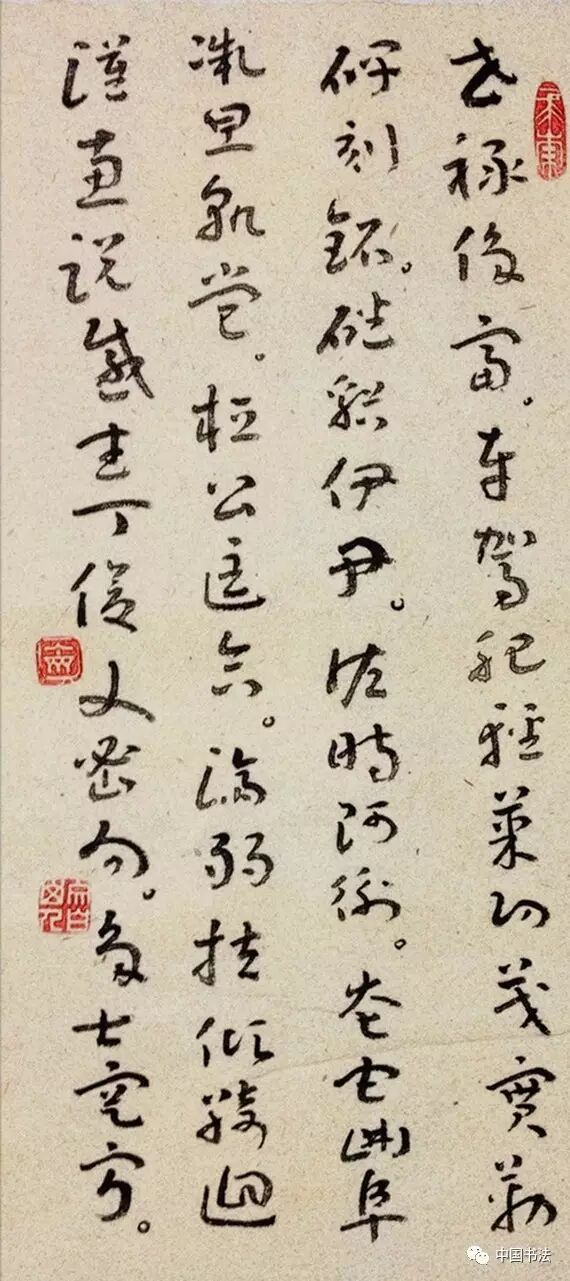 世祿侈富。車駕肥輕策功茂實勒
碑刻銘。磻谿伊尹。佐時阿衡。奄宅曲阜
微旦孰營。桓公匡合。濟弱扶傾綺迴
漢惠說感武丁俊乂密勿。多士寔寧。
中国书法